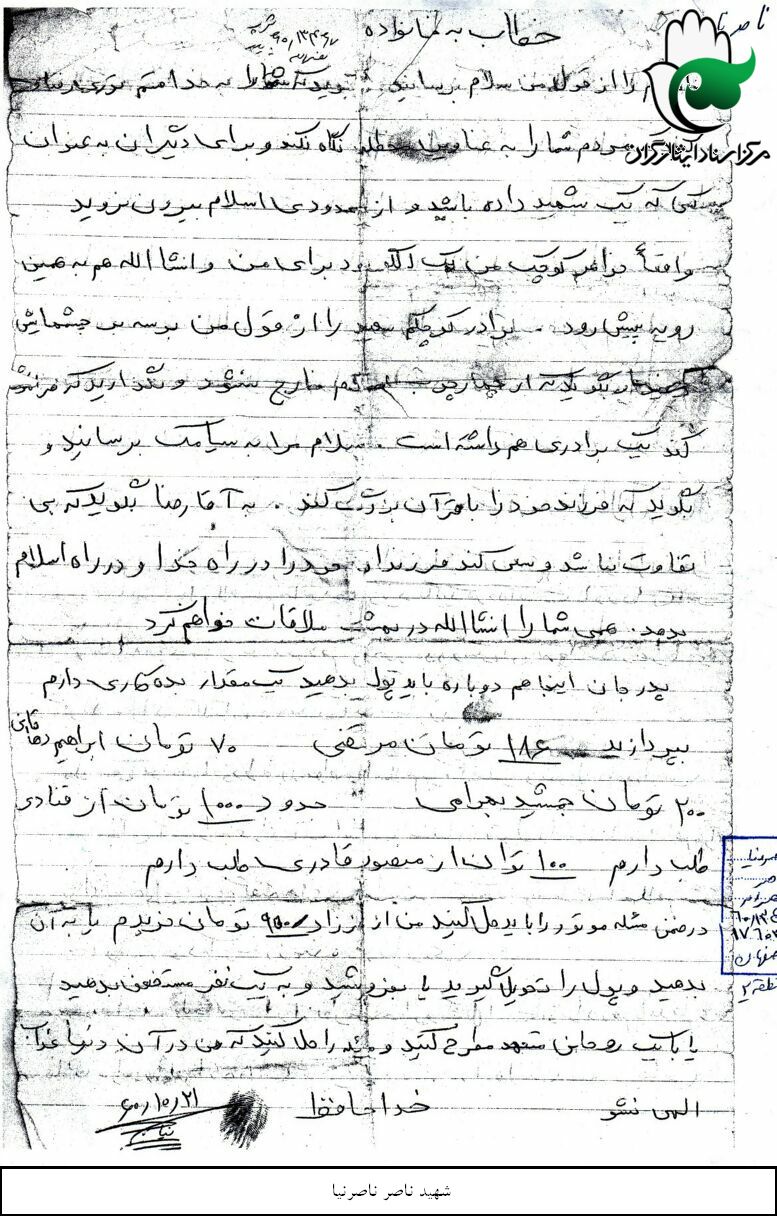 ناصر
خطاب به خانواده
مرکز اسناد ایثارگران
را از قول من سلام برسانید. بگویید که شما را به خدا
مردم شما را به عنوان نگاه نکند و برای دیگران به عنوان
کسی که یک شهید داده باشد و از حدودی اسلام بیرون نروید
واقعأ خواهر کوچک من یک الگو بود برای من و انشاالله هم به همین
رویه پیش رود. برادر کوچکم سعید را از قول من بوسه بر چشمایش
بگویید که از چهارچوب خارج نشود و نگذارید که فرزندش
کند یک برادری هم داشته است. سلام مرا به سیامک برسانید و
بگوید که فرزند خود را با قرآن بزرگ کند. به آقا رضا بگوید که بی
تفاوت نباشد و سعی کند فرزندان خود را در راه خدا و در راه اسلام
بدهد. همی شما را انشاالله در بهشت ملاقات خواهم کرد
پدر جان اینجا هم دوباره باید پول بدهید یک مقدار بده کاری دارم
بپردازید ۱۸۶ تومان مرتضی ۷۰ تومان ابراهیم
۲۰۰ تومان جمشید بهرامی حدود ۱۰۰۰ تومان از قنادی
طلب دارم ۱۰۰ توان از منصور قادری طلب دارم
در ضمن مسئله موتور را باید حل کنید من از تومان خریدم یا به آن
بدهید و پول را تحویل گیرید یا بفروشید و به یک نفر مستضعف بدهید
یا با یک روحانی متعهد مطرح کنید و مسئله را حل کنید که من در آن دنیا عذاب
الهی نشو خدا حافظ ۶۰/۱۰/۲۱
منطقه ۲
شهید ناصر ناصرنیا